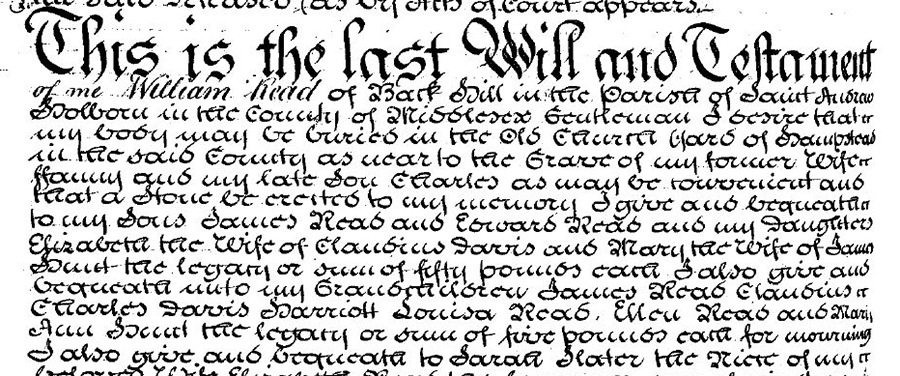 said deceased (as by Acts of Court appears.
This is the last Will and Testament
of me William Read of Back Hill in the Parish of Saint Andrew
Holborn in the County of Middlesex Gentleman I desire that
my body may be buried in the Old Church Yard of Hampstead
in the said County as near to the Grave of my former Wife
ffanny and my late Son Charles as may be convenient and
that a Stone be erected to my memory I give and bequeath
to my Sons James Read and Edward Read and my Daughters
Elizabeth the Wife of Claudius Davis and Mary the Wife of James
Hunt the legacy or sum of fifty pounds each I also give and
bequeath unto my Grandchildren James Read Claudius
Charles Davis Harriott Louisa Read, Ellen Read and Mary
Ann Hunt the legacy or sum of five pounds each for mourning
I also give and bequeath to Sarah Slater the Niece of my
beloved Wife Elizabeth Read